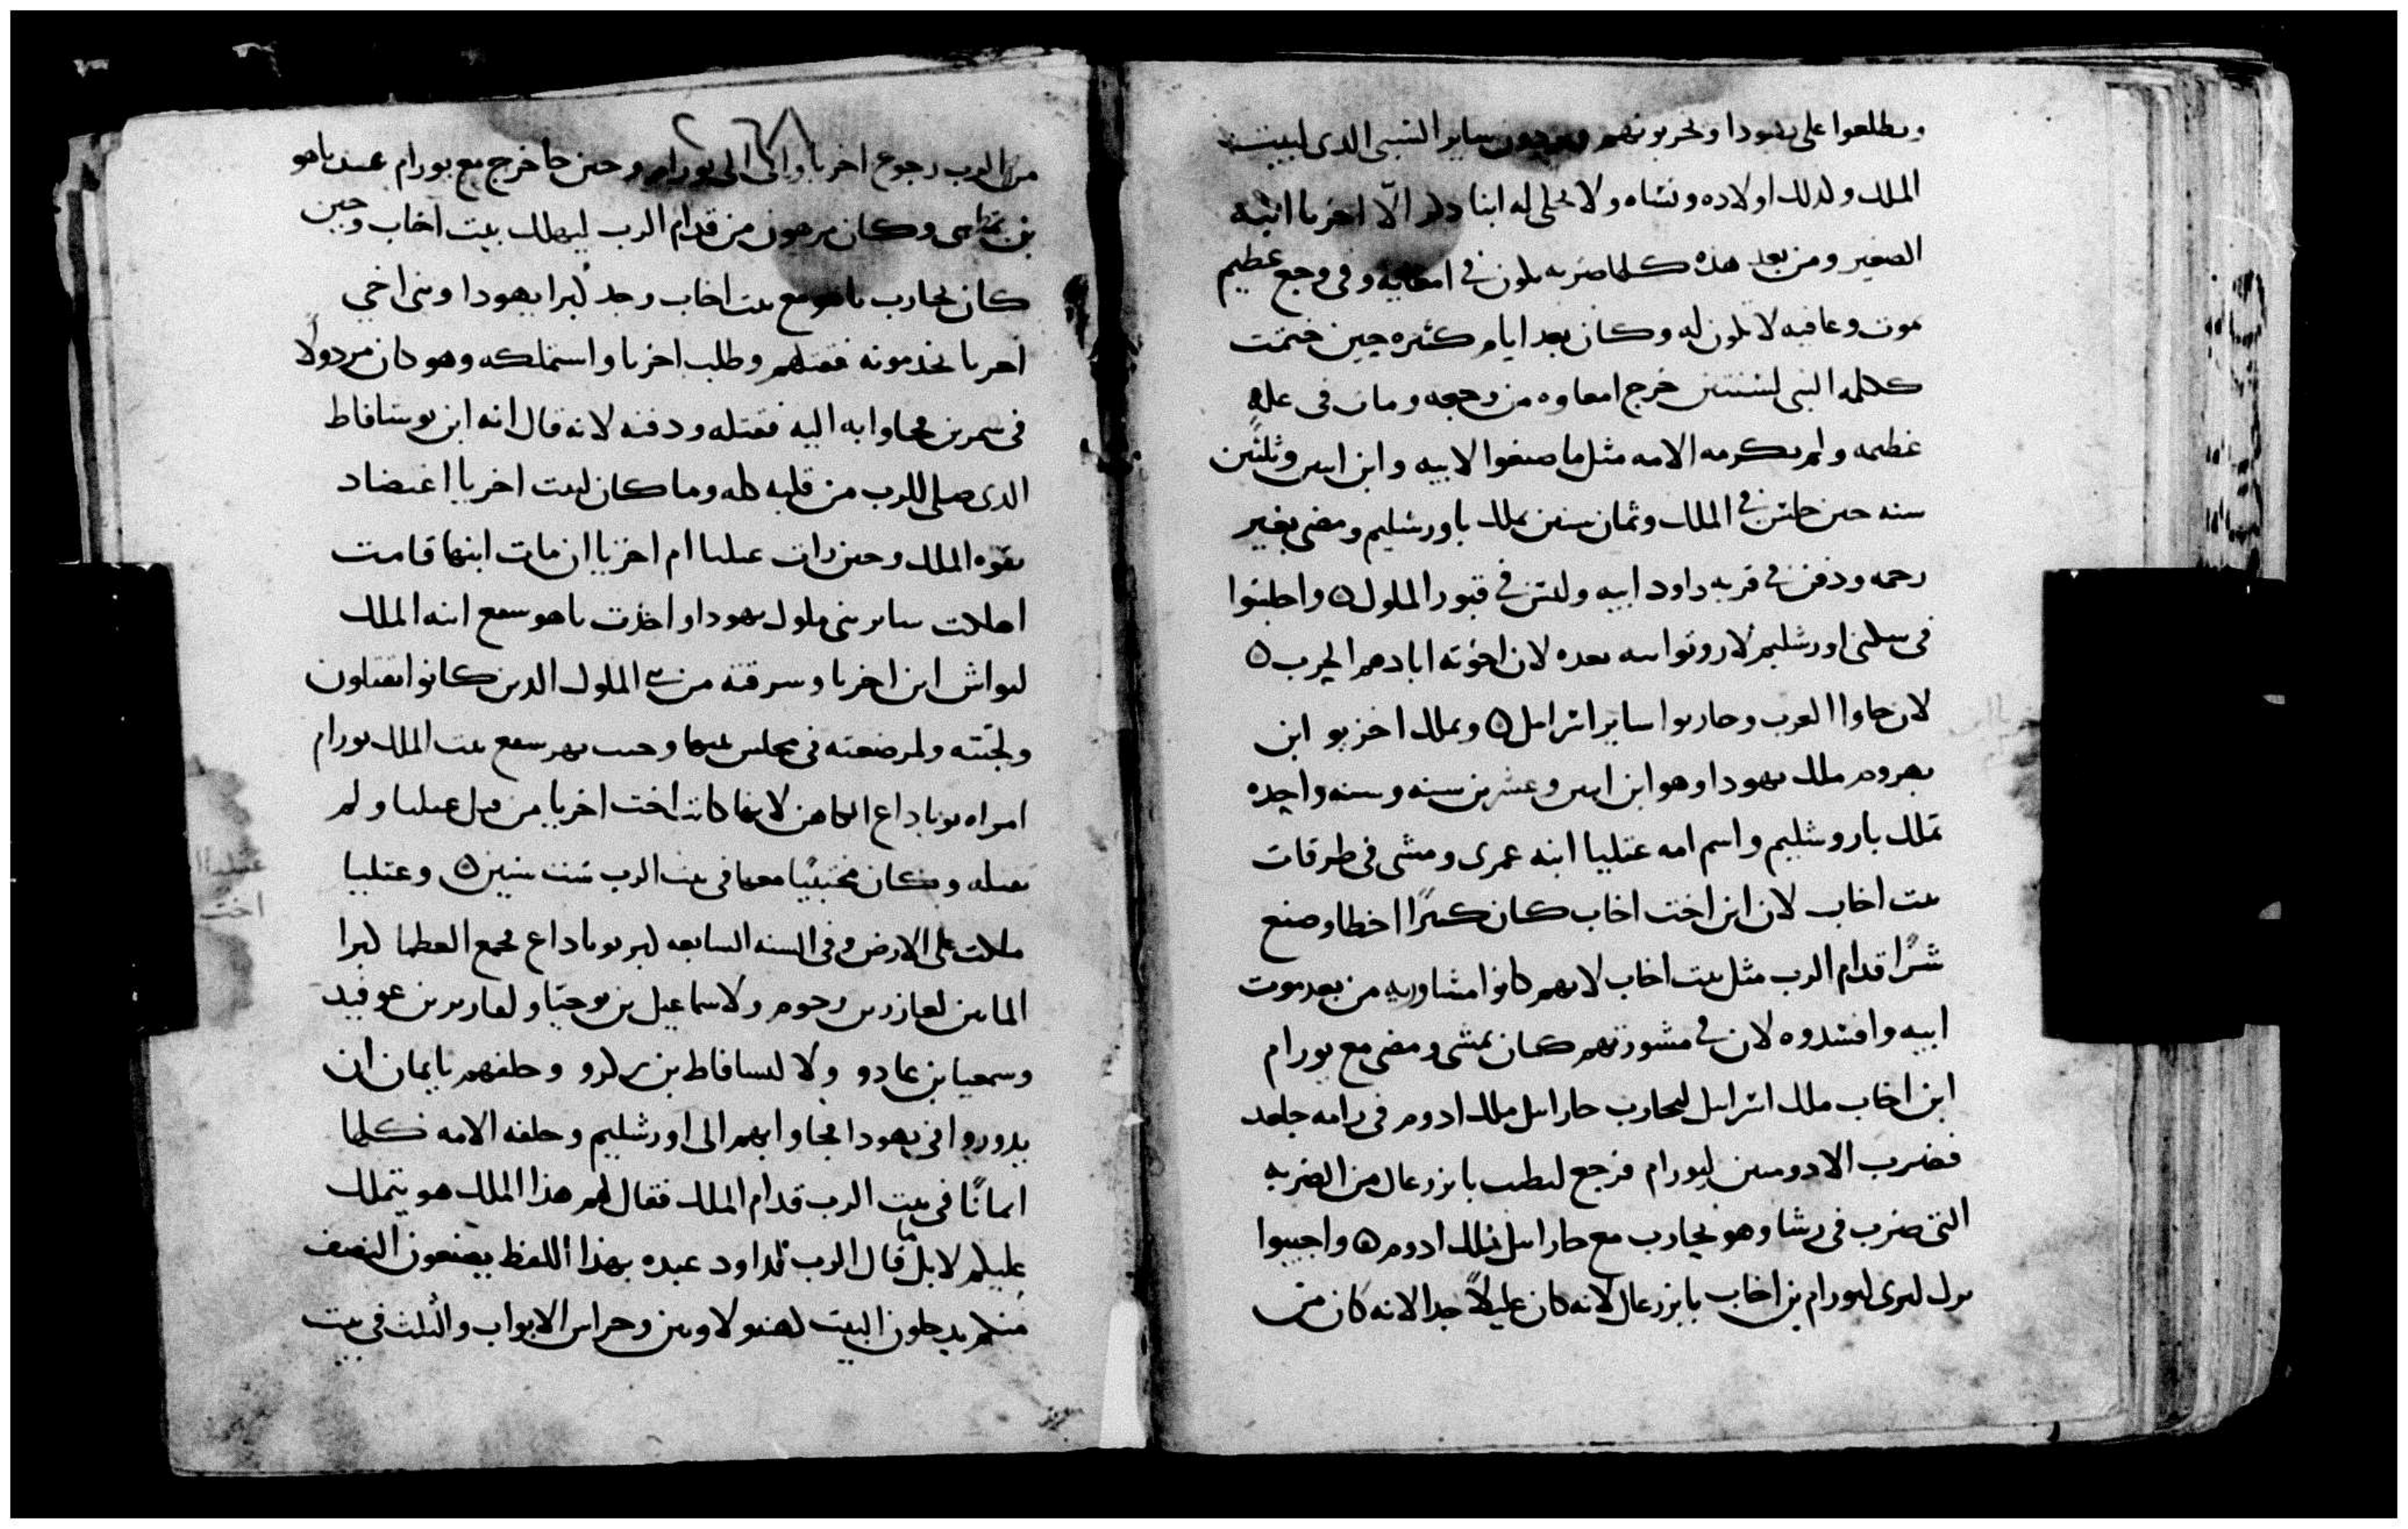 ويطلعوا على يهودا ويحربونهم ويردون ساير السبى الدى لبيت
الملك ولدلك اولاده ونساه ولا يخلى له ابنا دكر الّا اخزيا ابنه
الصغير ومن بعد هده كلها ضربه يكون فى امعايه وفى وجع عظيم
موت وعافيه لا تكون له وكان بعد ايام كثيره حين ختمت
كلمه النبى لسنتين خرج امعاوه من وجعه ومات فى عله
عظيمه ولم يكرمه الامه مثل ما صنعوا لابيه وابن اتنين وثلثين
سنه حين جلس فى الملك وثمان سنين ملك باورشليم ومضى بغير
رحمه ودفن فى قريه داود ابيه وليس فى قبور الملوك ۵ واجلسوا
فى سكنى اورشليم لاروتوا بعده لان اخوته ابادهم الحرب ۵
لان جاوا العرب وحاربوا ساير اسرايل ۵ وملك اخزيو ابن
يهروم ملك يهودا وهو ابن اتنين وعشرين سنه وسنه واحده
تملك باروشليم واسم امه عتليا ابنه عمرى ومشى فى طرقات
بيت اخاب لان ابن اخت اخاب كان كثيرًا اخطا وصنع
شرًا قدام الرب مثل بيت اخاب لانهم كانوا مشاوريه من بعد موت
ابيه وافسدوه لان فى مشورتهم كان يمشى ومضى مع يورام
ابن اخاب ملك اسرايل ليحارب حازايل ملك ادوم فى رامه جلعد
فضرب الادوميين ليورام فرجع ليطب بايزرعال من الضربه
التى ضرب فى رشا وهو يحارب مع حازايل ملك ادوم ۵ واخزيوا
نزل ليرى ليورام بن اخاب بايزرعال لانه كان عليلًا جدا لانه كان من
من الرب رجوع اخزيا واتى الى يورام وحين جا خرج مع يورام عند ياهو
بن نمسى وكان مرهون من قدام الرب ليهلك بيت اخاب وحين
كان يحارب ياهو مع بيت اخاب وجد كبرا يهودا وبنى اخى
اخزيا يخدمونه فقتلهم وطلب اخزيا واستملكه وهو كان مردولًا
فى سمرين فجاوا به اليه فقتله ودفنه لانه قال انه ابن يوسافاط
الدى صلى للرب من قلبه كله وما كان لبيت اخزيا اعتضاد
بقوه الملك وحين رات عتليا ام اخزيا ان مات ابنها قامت
اهلكت ساير بنى ملوك يهودا واخذت ياهو سبع ابنه الملك
ليواش ابن اخزيا وسرقته من بنى الملوك الدين كانوا يقتلون
وخبته ولمرضعته فى مجلس وخبت يهو سبع بنت الملك يورام
امراه يوياداع الكاهن لانها كانت اخت اخزيا من قبل عتليا ولم
تقتله وكان مختبيًا معها فى بيت الرب ست سنين ۵ وعتليا
ملكت على الارض وفى السنه السابعه كبر يوياداع فجمع العظما كبرا
الماين لعازر بن رحوم ولاسماعيل بن يوحنا ولعازر بن عوفيد
وسمعيا بن عادو ولاليسافاط بن زكرو وحلفهم بايمان ان
يدوروا فى يهودا فجاوا بهم الى اورشليم وحلفه الامه كلها
ايمانًا فى بيت الرب قدام الملك فقال لهم هذا الملك هو يتملك
عليكم لا بل كما قال الرب لداود عبده بهذا اللفظ يصنعون النصف
منكم يدخلون البيت لهنو لاويين وحراس الابواب والثلث فى بيت